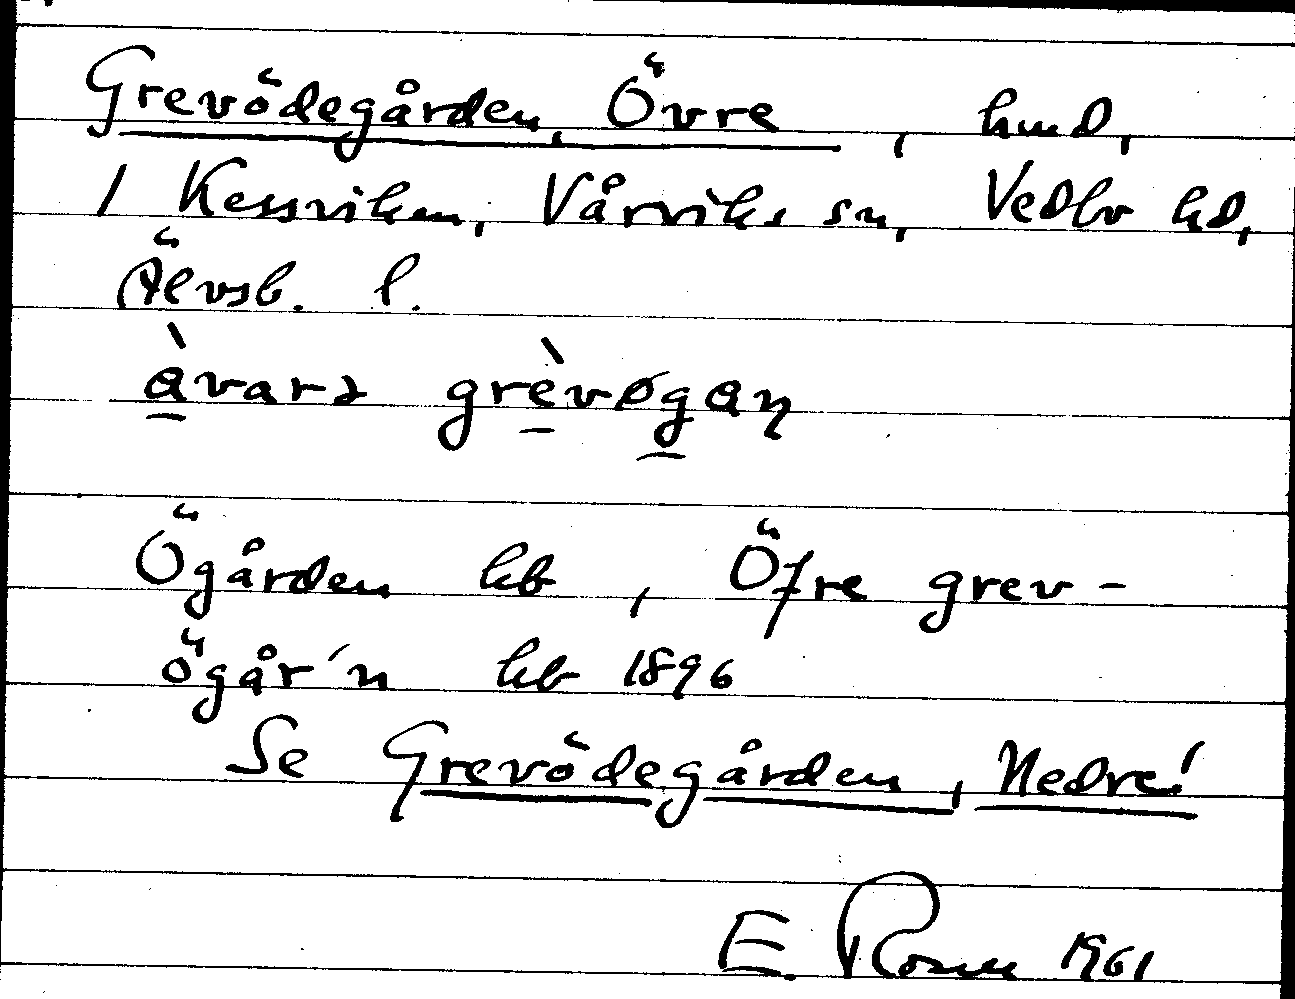 Grevödegården, Övre, hmd,
1 Kessviken, Vårviks sn, Vedbo hd,
Älvsb. l.
àvarə grèvøgaɳ
Ögården kb, Öfre grev-
ögår'n kb 1896
Se Grevödegården, Nedre!
E. 1961